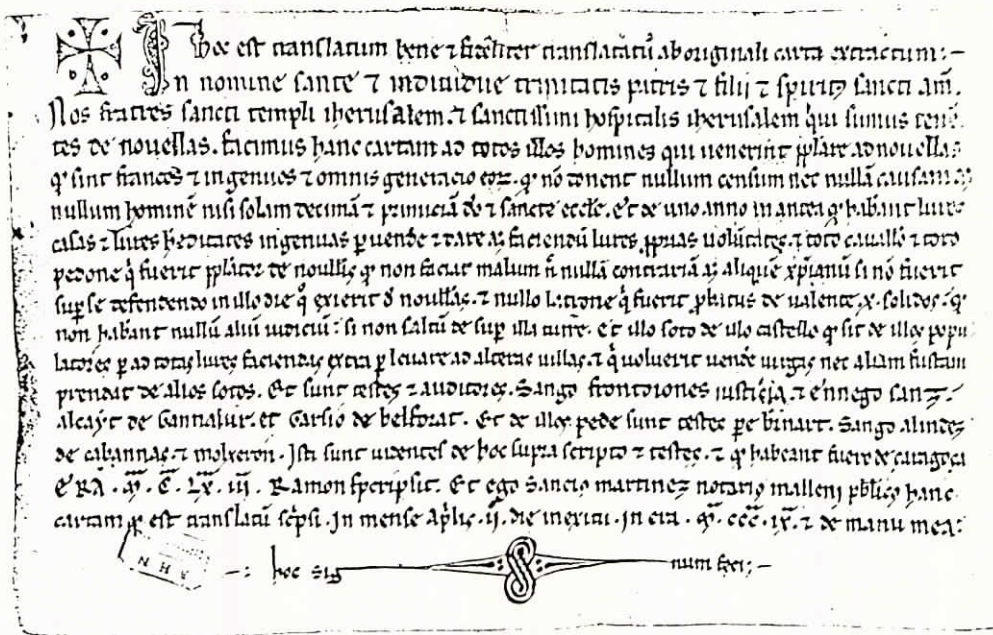 Hoc est translatum bene ⁊ fideliter translatatū ab originali carta extractum:–
In nomine sancte ⁊ individue trinitatis patris ⁊ filii ⁊ spiritꝯ sancti am̄.
Nos fratres sancti templi iherusalem. ⁊ sanctissimi hospitalis iherusalem q̇ui sumus tenē
tes de novellas. facimus hanc cartam ad totos illos homines qui venerint pplare ad novellas.
qͥ sint francos ⁊ ingenuos ⁊ omnis generacio eoꝝ. qͥ nō donent nullum censum nec nullā causam
nullum hominē nisi solam decimā ⁊ primiciā dō ⁊ sancte eccłe. et de uno anno in antea qͥ habant lures
casas ⁊ lures heditates ingenuas p vende ⁊ dare ad faciendū lures ppuas volūtates. ⁊ toto cavallō ⁊ toto
pedone q̇ fuerit pplatoꝛ de novllas qͥ non faciat malum nͥ nullā contrariā ad aliquē xp̄ianū si nō fuerit
sup se defendendo in illo die q̇ exierit d novllas. ⁊ nullo latrone q̇ fuerit pbatus de valente .x. solidos. qͥ
non habant nullū aliū iudiciū: si non saltū de sup illa turre. et illo soto de illo castello qͥ sit de illos popu
latores p ad totas lures faciendas extra p levare ad alteras villas. ⁊ q̇ voluerit vende virgas nec aliam fustam
prendat de alios sotos. Et sunt testes ⁊ auditores. Sango frontdiones iusticia. ⁊ ennego sanꝫ.
alcayt de Gannalur. et Garsio de belforat. Et de illos pede sunt testes pe binart. Sango alindeꝫ
de cabannas. ⁊ molxeron. Isti sunt videntes de hoc supra scripto ⁊ testes. ⁊ qͥ habeant fuero de caragoça
ERA. M̄. C̄. LX̄. iii. Ramon scripsit. Et ego Sancio martineꝫ notariꝯ malleni pblicꝯ hanc
cartam qͥ est translatū scpsi. In mense aplis .ii. die inexitu. In era. M̄. ccc̄. ix̄. ⁊ de manu mea:
–: hoc sig num feci:–
A H N